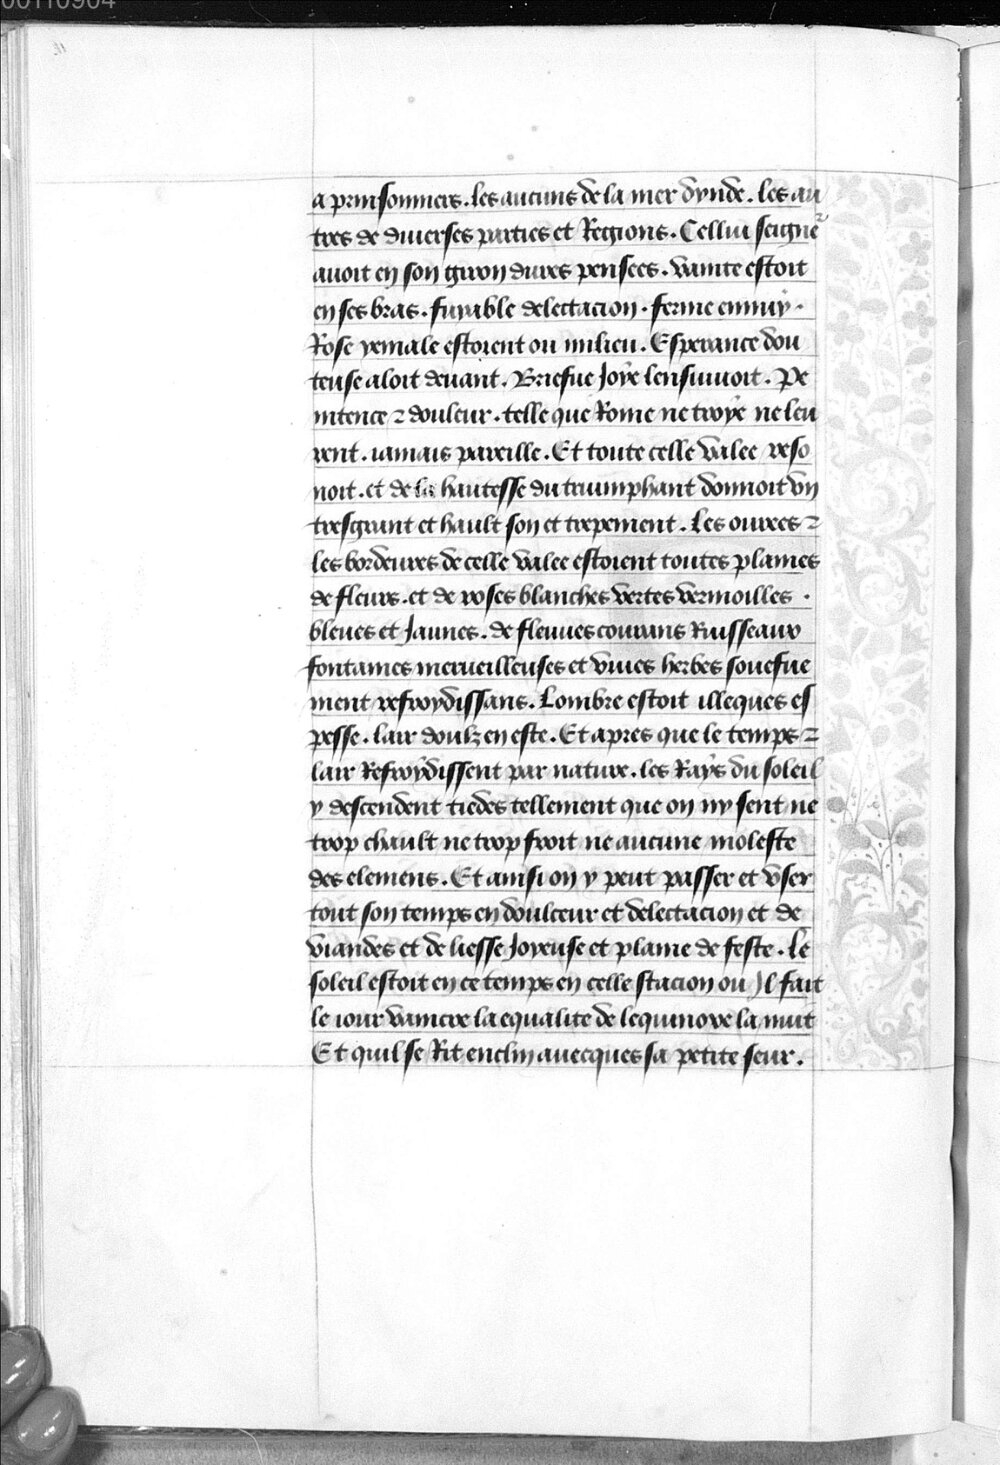 00110904
a prinsonniers. les aucuns de la mer dynde. les au
tres de diuerses parties et Regions. Cellui seigne
auoit en son giron dures pensees. vanite estoit
en ses bras. fuyable delectacion. ferme ennuy.
Rose yemale estoient ou milieu. Esperance dou
teuse aloit deuant. Briefue Joye lensuiuoit. Pe
nitence ⁊ douleur. telle que Rome ne troye ne leu
rent. iamais pareille. Et toute celle valee reso
noit. et de la haultesse du triumphant donnoit vn
tresgrant et hault son et trepement. Les ouures ⁊
les bordeures de celle valee estoient toutes plaines
de fleurs. et de roses blanches vertes vermoilles.
bleues et Jaunes. de fleuues courans Ruisseaux
fontaines merueilleuses et viues herbes souefue
ment refroydissans. Lombre estoit illeques es
pesse. lair doulz en este. Et apres que le temps ⁊
lair Refroydissent par nature. les Rays du soleil
y descendent tiedes tellement que on ny sent ne
trop chault ne trop froit ne aucune moleste
des elemens. Et ainsi on y peut passer et vser
tout son temps en doulceur et delectacion et de
viandes et de liesse Joyeuse et plaine de feste. Le
soleil estoit en ce temps en celle stacion ou Jl fait
le iour vaincre la equalite de lequinoxe la nuit
Et quil se Rit enclin auecques sa petite seur.